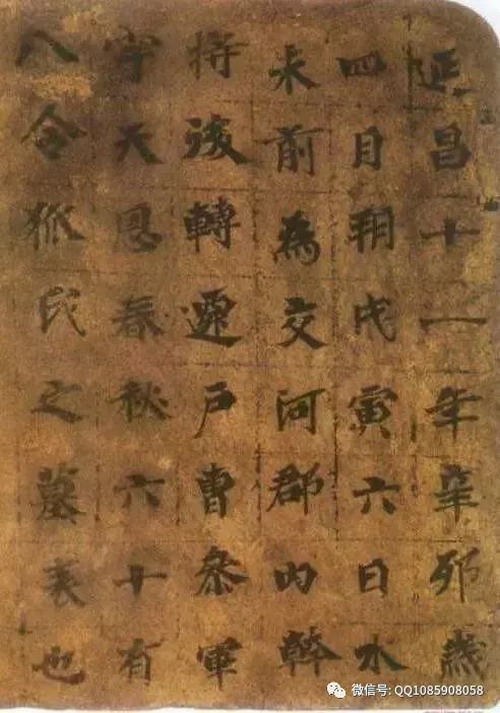 延昌十一年辛卯歲
四月朔戊寅六日水
未前為交河郡內幹
將後轉遷戶曹叅軍
字天恩春秋六十有
八令狐氏之墓表也
微信号: QQ1085908058